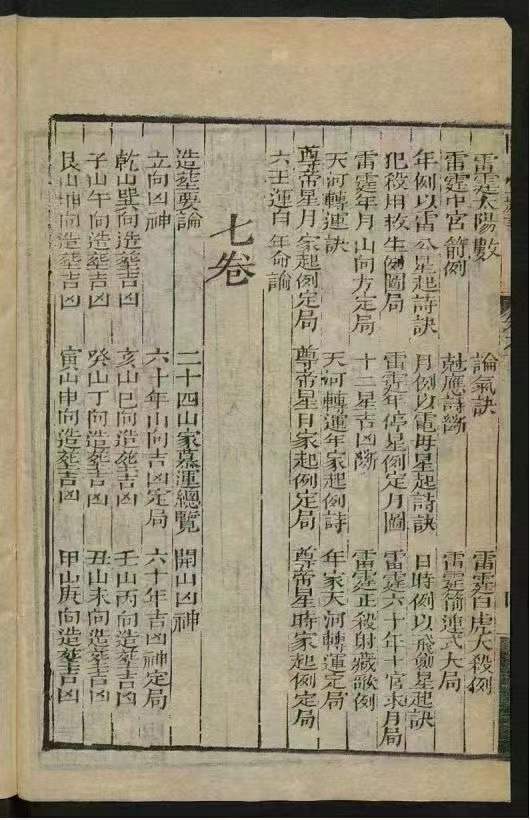 雷霆太陽數 論氣訣 雷霆白虎大殺例
雷霆中宮箭例 尅應詩斷 雷霆箭連式大局
年例以雷公星起詩訣 月例以電母星起詩訣 日時例以飛劍星起訣
犯殺用救生例圖局 雷霆年停星例定月圖 雷霆六十年十宮求月局
雷霆年月山向方定局 十二星吉凶斷 雷霆正殺射藏歌例
天河轉運訣 天河轉運年家起例詩 年家天河轉運定局
尊帝星月家起例定局 尊帝星日家起例定局 尊帝星時家起例定局
六壬運白年命論
七卷
造葬要論 二十四山家墓運總覽 開山凶神
立向凶神 六十年山向吉凶定局 六十年吉凶神定局
乾山巽向造葬吉凶 亥山巳向造葬吉凶 壬山丙向造葬吉凶
子山午向造葬吉凶 癸山丁向造葬吉凶 丑山未向造葬吉凶
艮山坤向造葬吉凶 寅山申向造葬吉凶 甲山庚向造葬吉凶